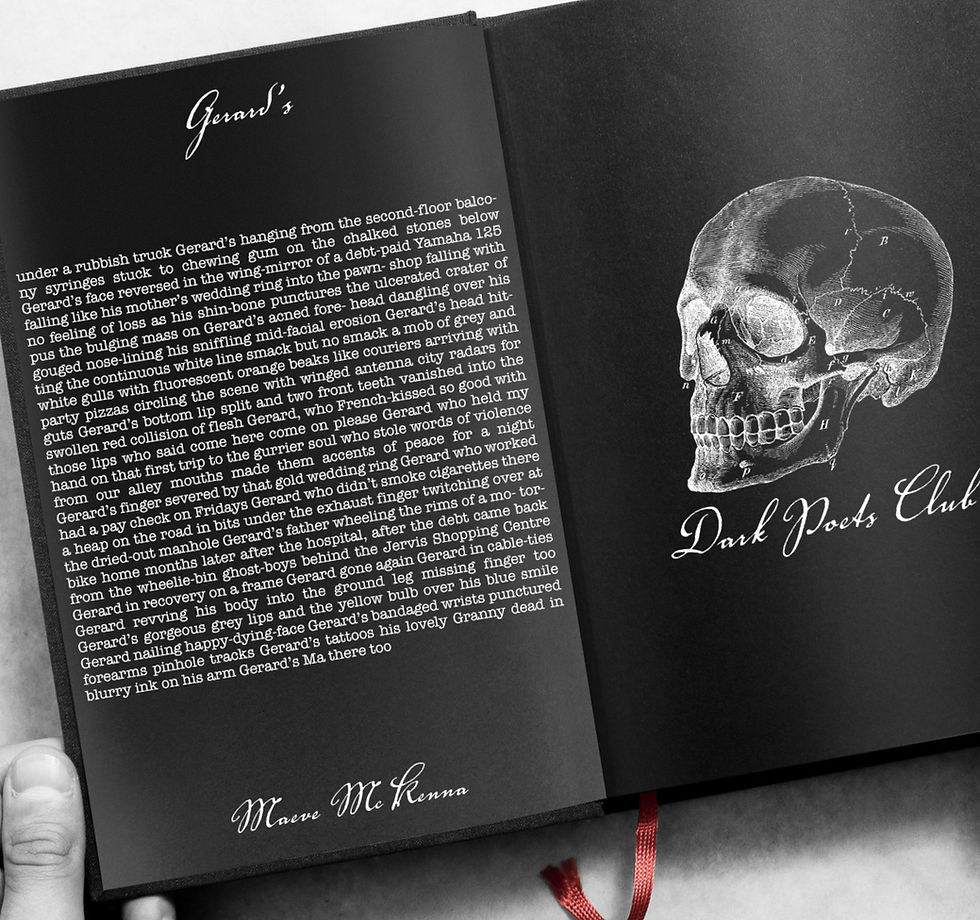 Gerard's
under a rubbish truck Gerard's hanging from the second-floor balco-
ny syringes stuck to chewing gum on the chalked stones below
Gerard's face reversed in the wing-mirror of a debt-paid Yamaha 125
falling like his mother's wedding ring into the pawn- shop falling with
no feeling of loss as his shin-bone punctures the ulcerated crater of
pus the bulging mass on Gerard's acned fore- head dangling over his
gouged nose-lining his sniffling mid-facial erosion Gerard's head hit-
ting the continuous white line smack but no smack a mob of grey and
white gulls with fluorescent orange beaks like couriers arriving with
party pizzas circling the scene with winged antenna city radars for
guts Gerard's bottom lip split and two front teeth vanished into the
swollen red collision of flesh Gerard, who French-kissed so good with
those lips who said come here come on please Gerard who held my
hand on that first trip to the gurrier soul who stole words of violence
from our alley mouths made them accents of peace for a night
Gerard's finger severed by that gold wedding ring Gerard who worked
had a pay check on Fridays Gerard who didn't smoke cigarettes there
a heap on the road in bits under the exhaust finger twitching over at
the dried-out manhole Gerard's father wheeling the rims of a mo- tor-
bike home months later after the hospital, after the debt came back
from the wheelie-bin ghost-boys behind the Jervis Shopping Centre
Gerard in recovery on a frame Gerard gone again Gerard in cable-ties
Gerard revving his body into the ground leg missing finger too
Gerard's gorgeous grey lips and the yellow bulb over his blue smile
Gerard nailing happy-dying-face Gerard's bandaged wrists punctured
forearms pinhole tracks Gerard's tattoos his lovely Granny dead in
blurry ink on his arm Gerard's Ma there too
Maeve McKenna
B
D
C
E
A
F
H
Dark Poets Club